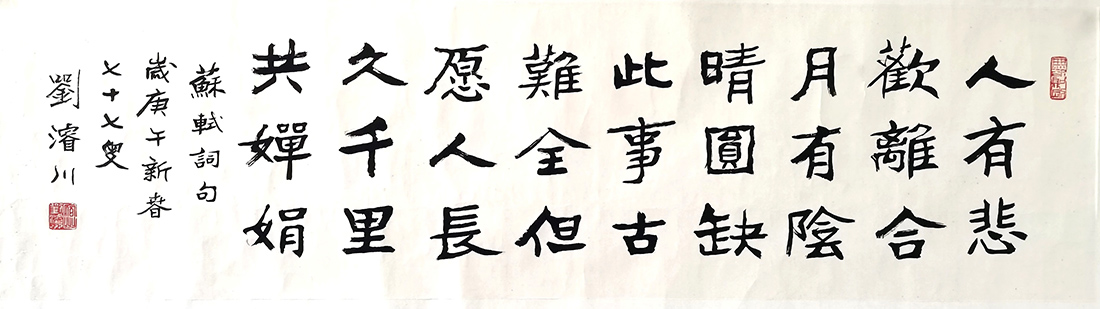 人有悲
歡離合
月有陰
晴圓缺
此事古
難全但
愿人長
久千里
共嬋娟
蘇軾詞句
歲庚午新春
七十七叟
劉濬川